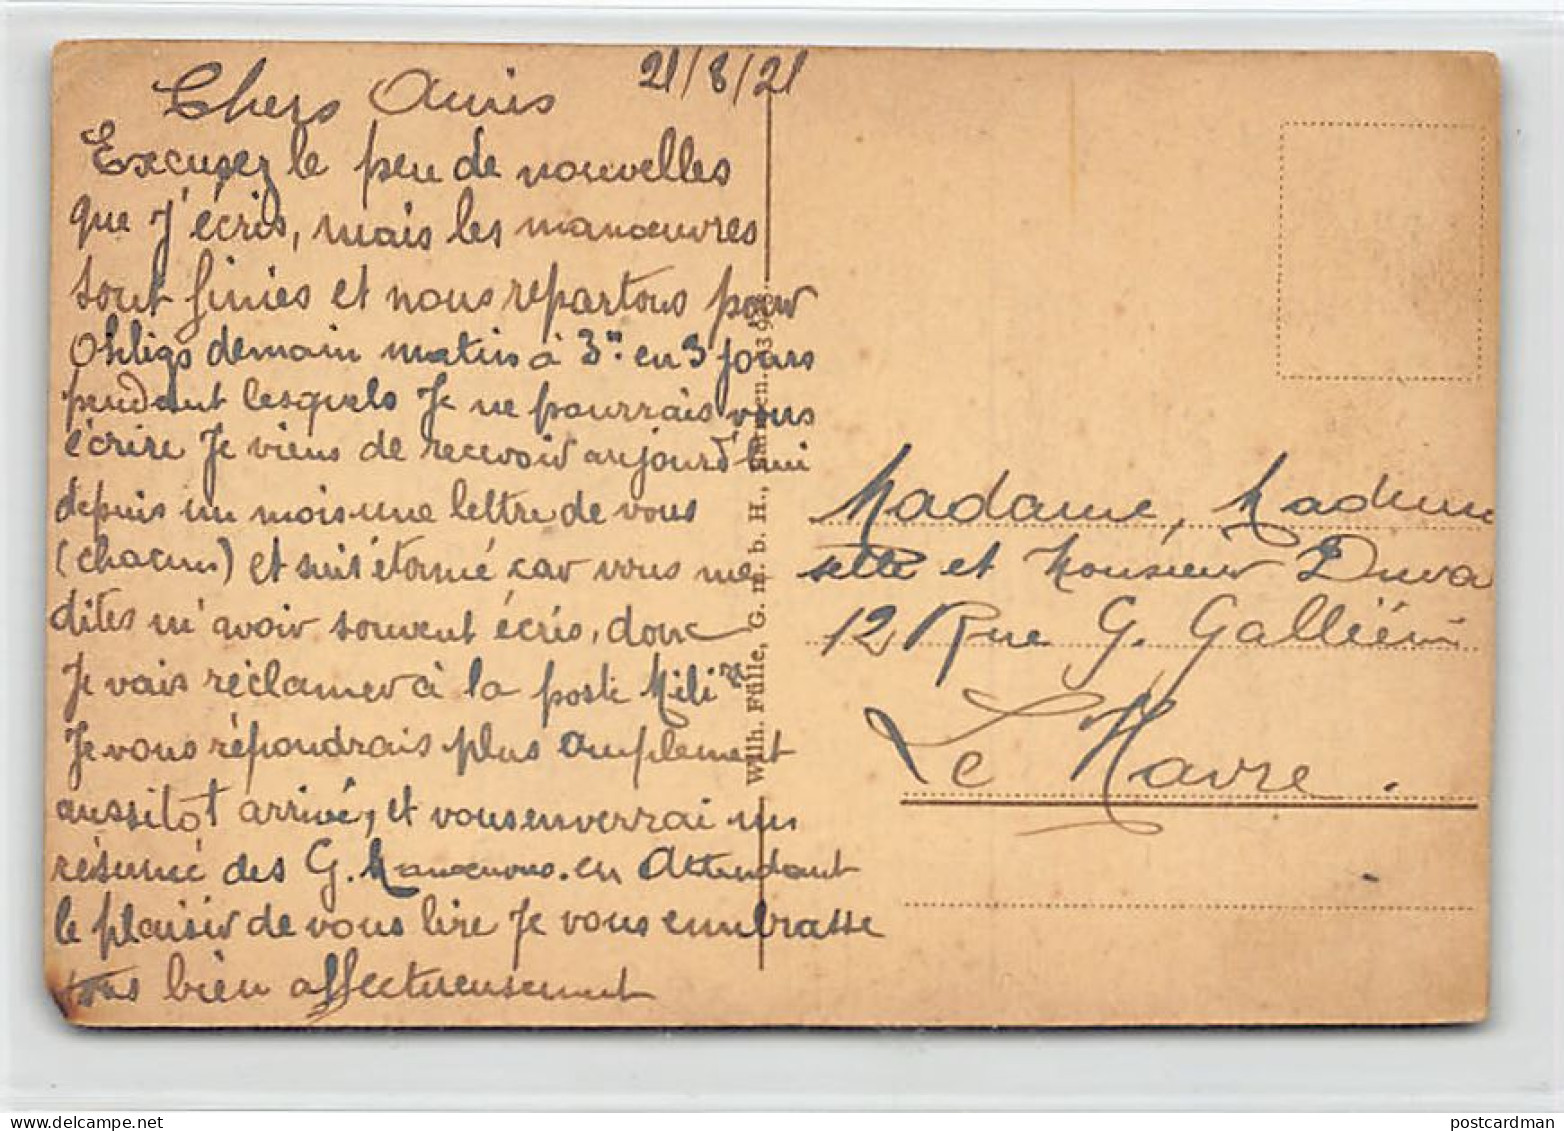 21/8/21
Chers Amis
Excusez le peu de nouvelles
que j'écris, mais les manœuvres
sont finies et nous repartons pour
Ohligs demain matin à 3 en 3 jours
pendant lesquels Je ne pourrais vous
écrire Je viens de recevoir aujourd'hui
depuis un mois une lettre de vous
(chacuns) et suis étonné car vous me
dites m'avoir souvent écris, donc
Je vais réclamer à la poste Mili re
Je vous répondrais plus amplement
aussitôt arrivé, et vous enverrai un
résumé des G. Manœuvres. en Attendant
le plaisir de vous lire Je vous embrasse
tous bien affectueusement
Wilh. Fülle, G. m. b. H., Barmen.
Madame, Madem
selle et Monsieur Duva
12 Rue G. Galliéni
Le Havre.
postcardman